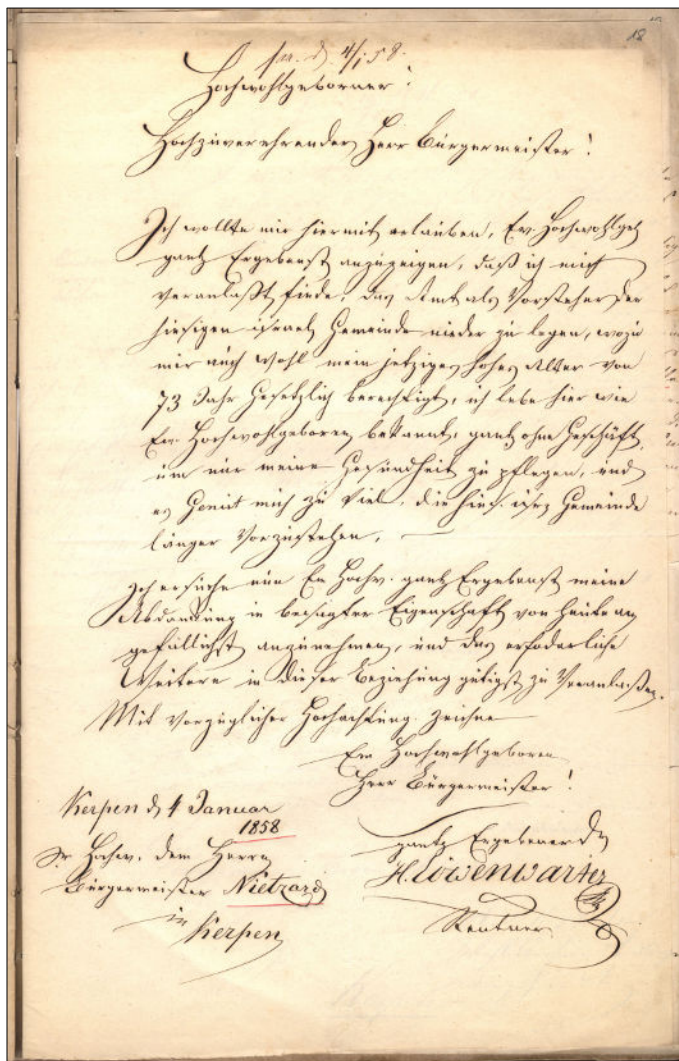 18
pr. d. 4/1 58.
Hochwohlgeborner!
Hochzuverehrender Herr Bürgermeister!
Ich wollte mir hiermit erlauben, Ew. Hochwohlgeb
gantz Ergebenst anzuzeigen, daß ich mich
veranlaßt finde, das Amt als Vorsteher der
hiesigen israel. Gemeinde nieder zu legen, wozu
mir auch wohl mein jetziges hohes Alter von
73 Jahr Gesetzlich berechtigt, ich lebe hier wie
Ew. Hochwohlgeboren bekannt, gantz ohne Geschäft,
um nur meine Gesundheit zu pflegen, und
es Genirt mich zu viel, die hies. isr. Gemeinde
länger Vorzustehen, —
Ich ersuche nun Ew Hochw. gantz Ergebenst meine
Abdankung in besagter Eigenschaft von heute an
gefälligst anzunehmen, und das erforderliche
Weitere in dieser Beziehung gütigst zu Veranlaßen.
Mit vorzüglicher Hochachtung zeichne
Ew Hochwohlgeboren
Herr Bürgermeister!
Kerpen d 4 Januar
1858
gantz Ergebener
Sr Hochw. dem Herrn
H. Löwenwarter
Bürgermeister Nietrard
Rentner
in
Kerpen